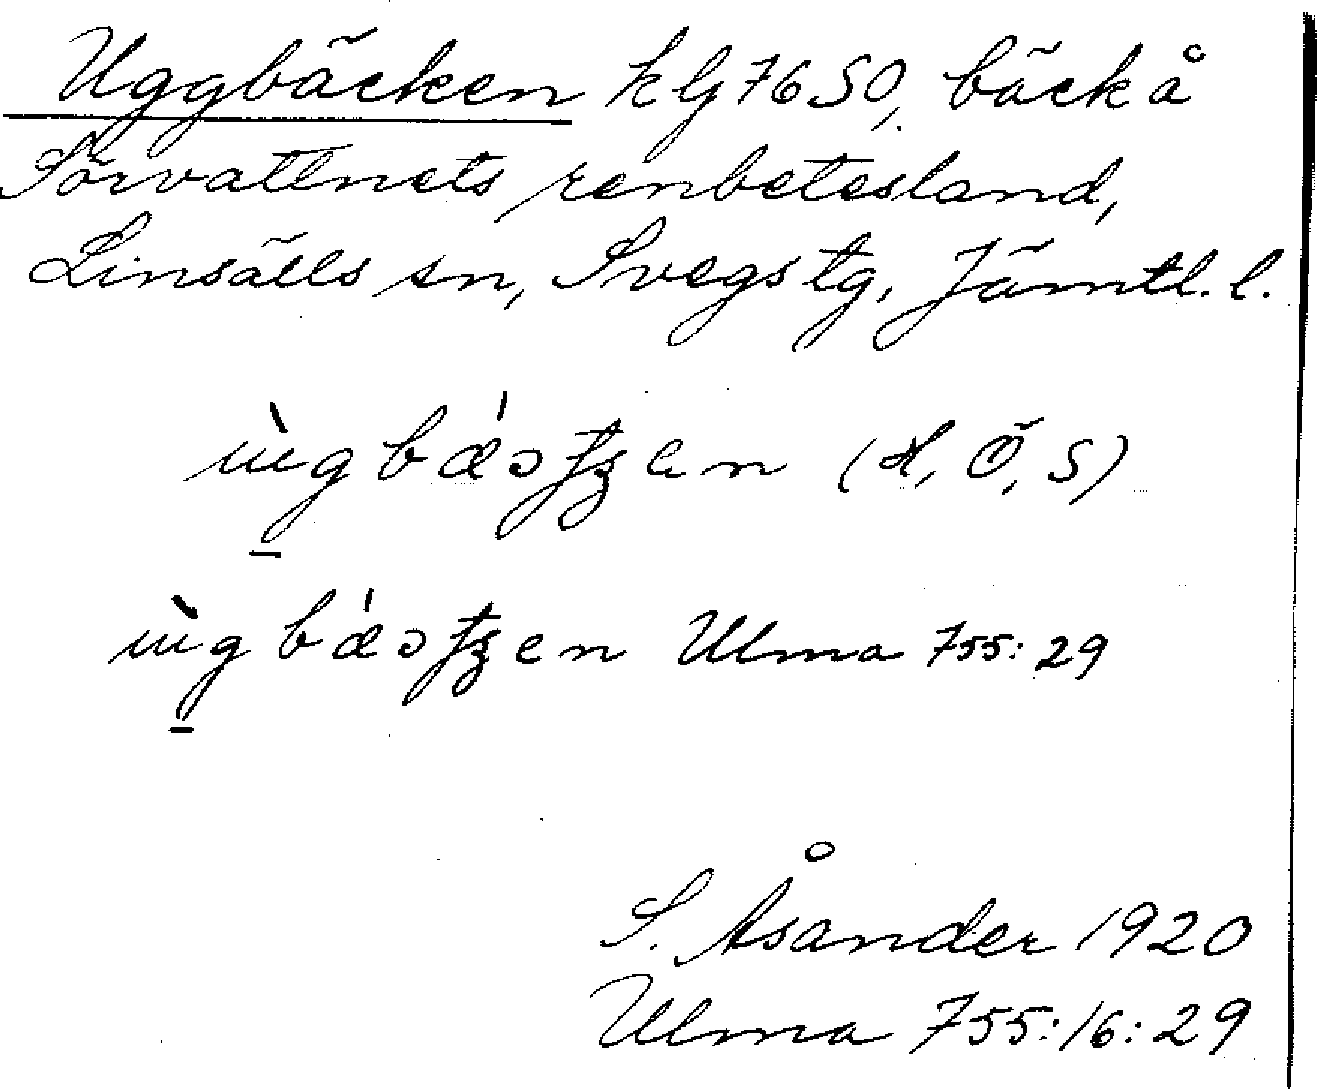 Uggbäcken kG7650, bäck å
Förvattnets renbetesland,
Linsälls sn, Svegs tg, Jämtl. l.
ùgbǽɔꞙʒen (H, Ö, S)
ùgbǽɔꞙʒen Ulma 755:29
S. Åsander 1920
Ulma 755:16:29